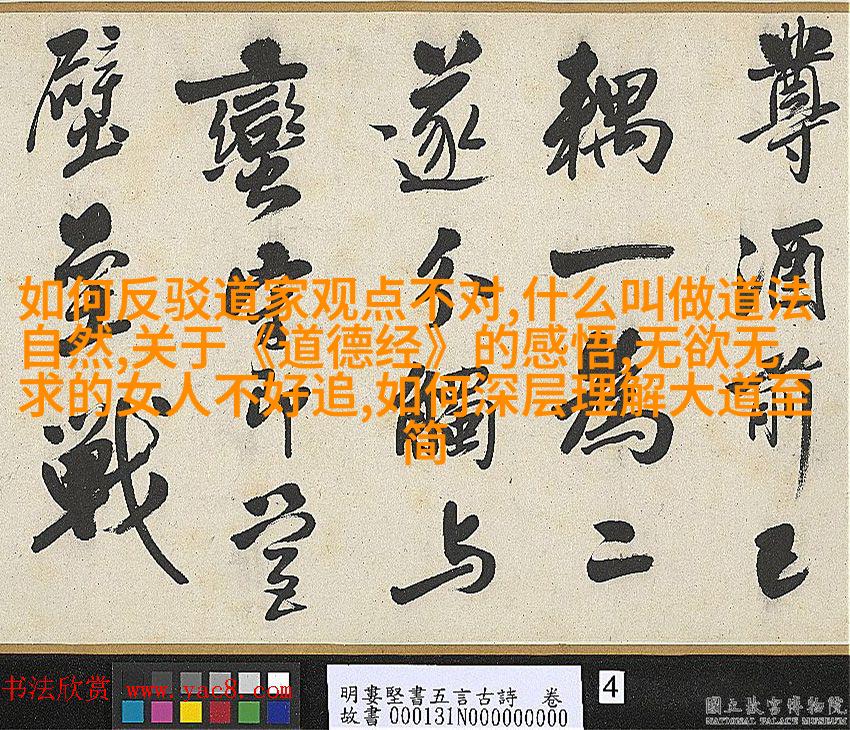 尊酒前已
耦一為二
遂分觸与
蠻
壁壘戰
如何反驳道家观点不对,什么叫做道法
自然,关于《道德经》的感悟,无欲无
求的女人不好追,如何深层理解大道至
简
书法欣赏 www.yac8.com
明婁堅書五言古詩 卷
故書 000131N000000000
4
國立故宮博物院
NATIONAL PALACE MUSEUM